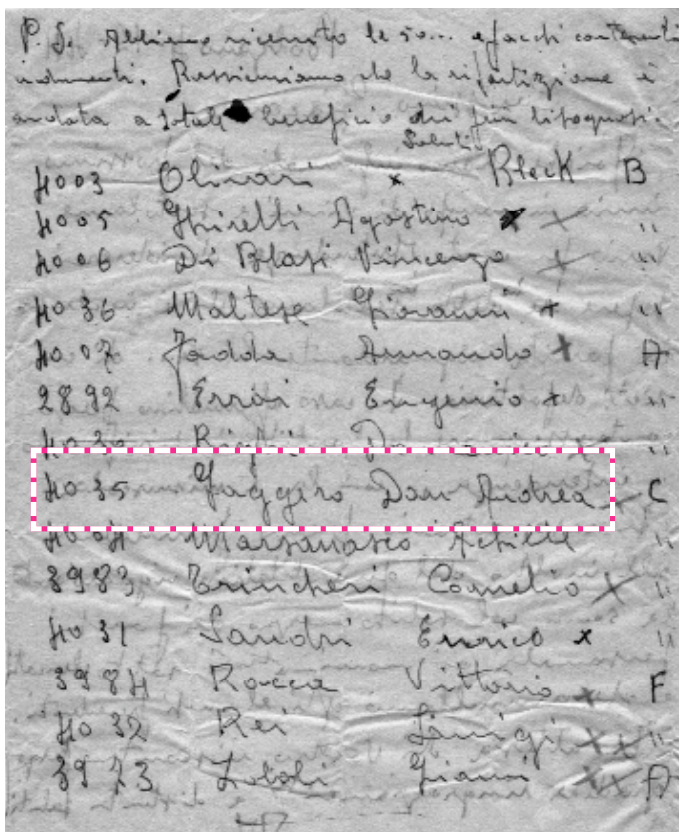 P. S. Abbiamo ricevuto le 50... pacchi contenenti
indumenti. Rassicuriamo che la ripartizione è
andata a totale beneficio dei più bisognosi.
Saluti
4003 Olivari x Block B
4005 Ghirelli Agostino x x "
4006 Di Blasi Vincenzo x "
4036 Maltese Giovanni x "
4007 Jadda Armando x A
2892 Errai Eugenio x "
4035 Gaggero Don Andrea x C
Marsanasco Achille "
3983 Trincheri Cornelio x "
4031 Sandri Enrico x "
3984 Rocca Vittorio x F
4032 Rei Luigi x x "
3973 Zoboli Gianni x x A